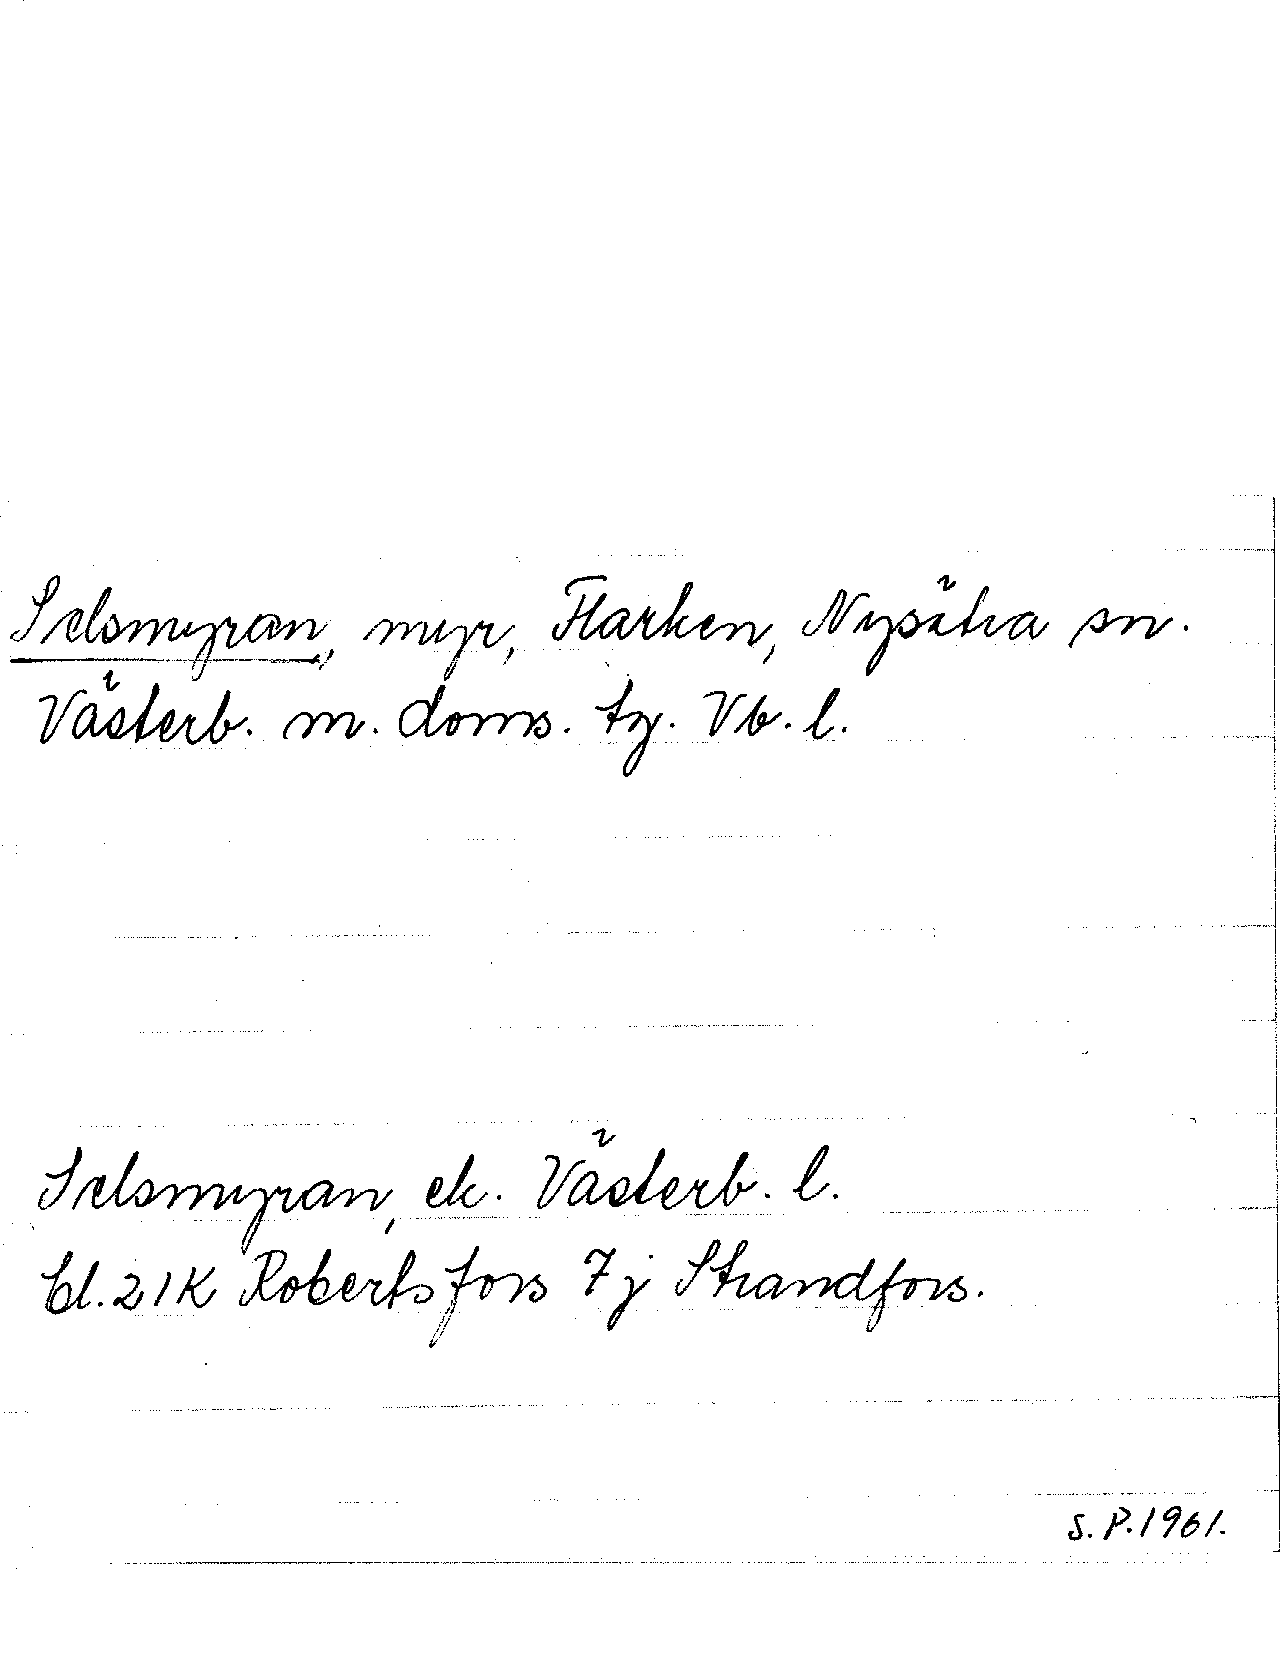 Selsmyran, myr, Flarken, Nysätra sn.
Västerb. m. doms. tg. Vb. l.
Selsmyran, ek. Västerb. l.
bl. 21K Robertsfors 7j Strandfors.
S. P. 1961.